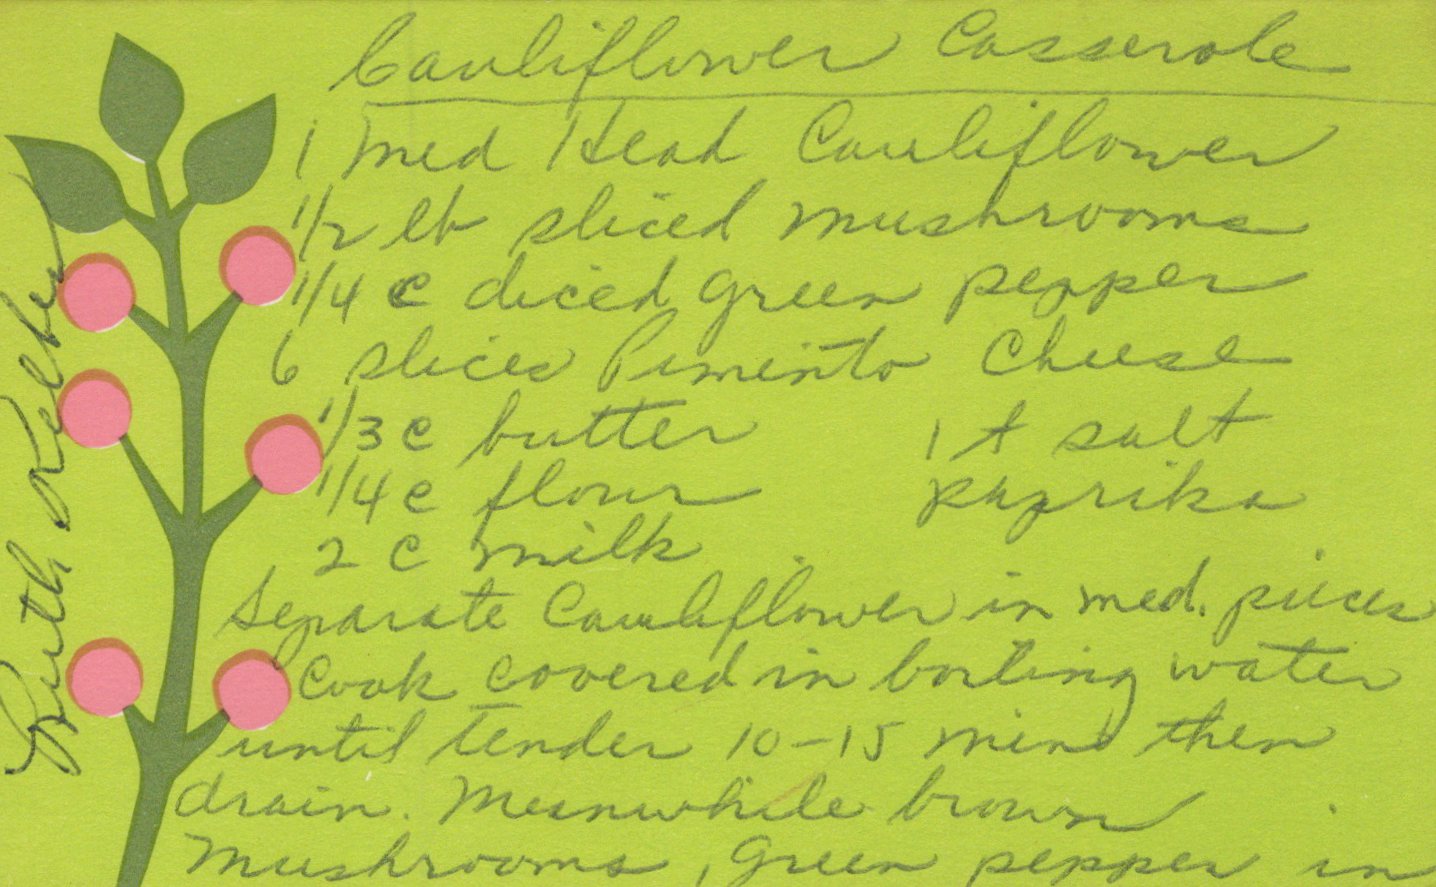 Cauliflower Casserole
1 med Head Cauliflower
1/2 lb sliced mushrooms
1/4 c diced green pepper
6 slices Pimento Cheese
1/3 c butter 1 t salt
1/4 c flour paprika
2 c milk
Separate Cauliflower in med. pieces
Cook covered in boiling water
until tender 10-15 min then
drain. Meanwhile brown
mushrooms, green pepper in
Ruth